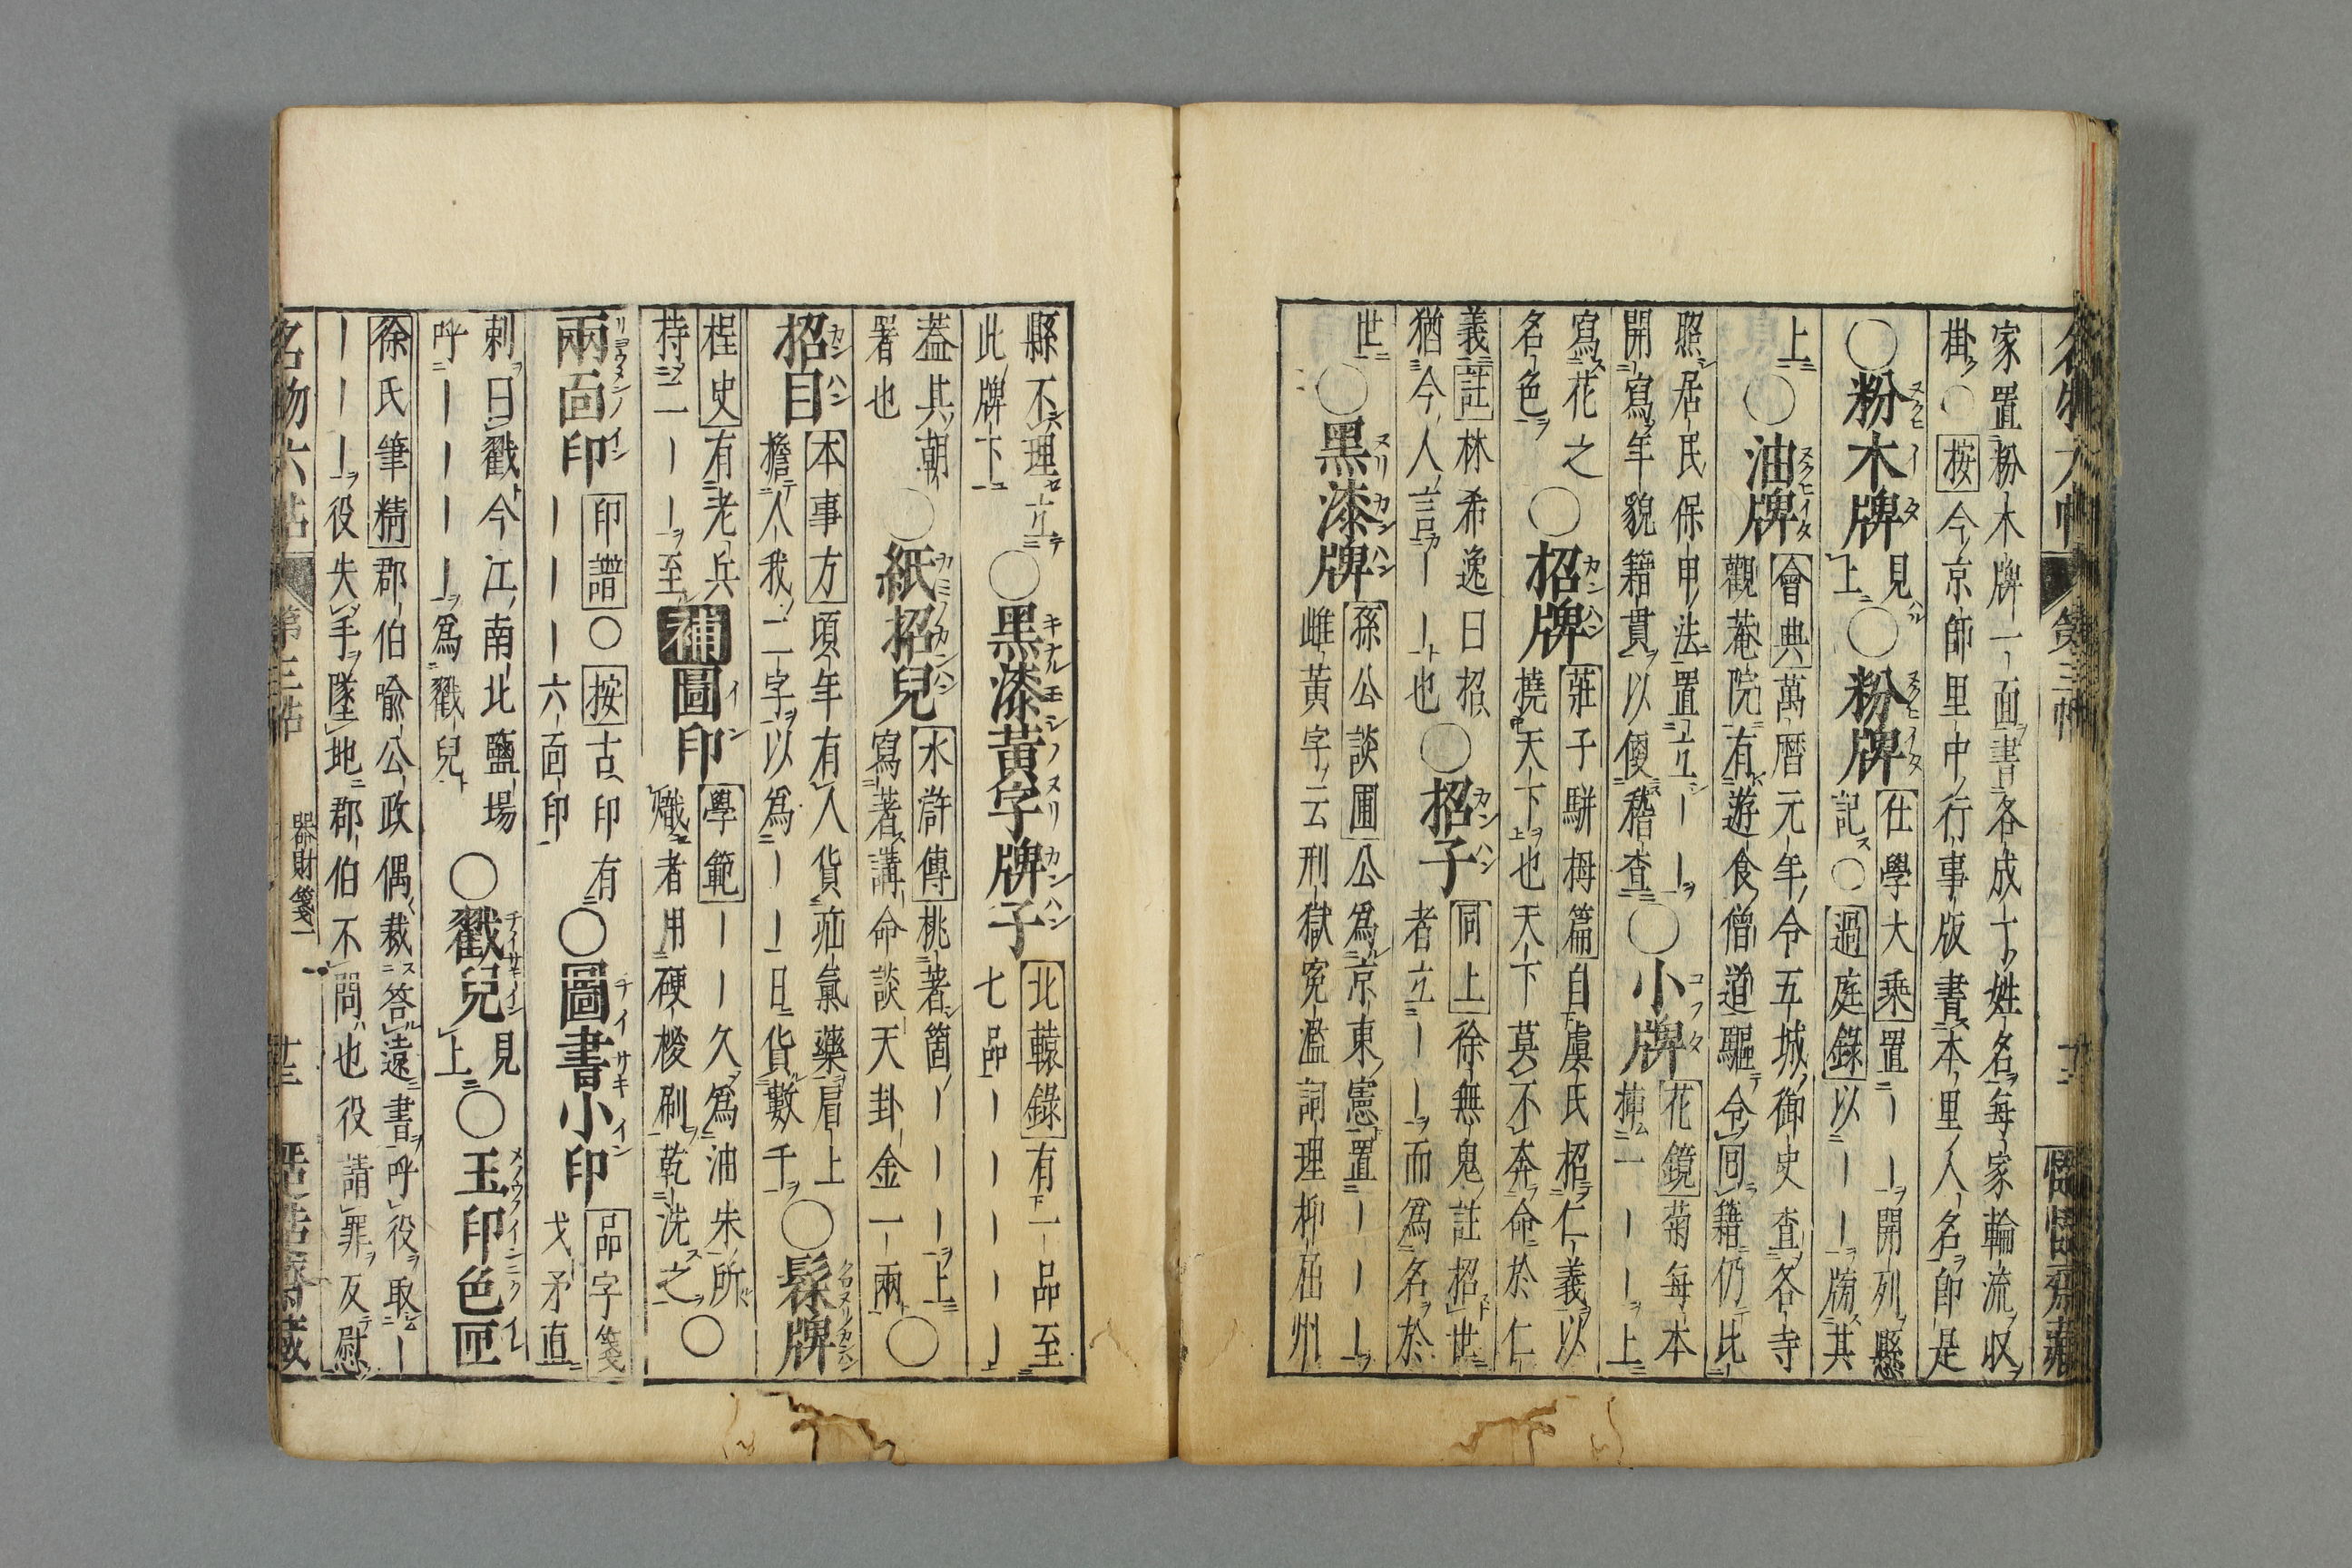 名物六帖 第三帖
家置粉木牌一面書各成十姓名毎家輪流収
掛○按今京師里中行事版書本里人名即是
○粉木牌見上○粉牌仕學大乗置ーー開列懸
記○過庭錄以ーー牓其
上○油牌會典萬曆元年令五城御史査各寺
觀菴院有遊食僧道驅令回籍仍比
照居民保甲法置立ーー
開寫年貌籍貫以便稽査○小牌花鏡菊毎本
挿一ーー上
寫花之
名色○招牌莊子駢拇篇自虞氏招仁義以
撓天下也天下莫不奔命於仁
義註林希逸曰招
猶今人言ーー也○招子同上徐無鬼註招世
者立ーー而爲名於
世○黑漆牌孫公談圃公爲京東憲置ーーー
雌黃字云刑獄寃濫詞理抑屈州
縣不理立
此牌下○黑漆黃字牌子北轅錄有一品至
七品ーーーーー
蓋其朝
署也○紙招兒水滸傳桃著箇ーーー上
寫著講命談天卦金一兩○
招目本事方頃年有人貨疝氣藥眉上
擔人我二字以爲ーー日貨數千○髹牌
桯史有老兵
持二ーー至補圖印學範ーー久爲油朱所
熾者用硬椶刷乾洗之○
兩面印印譜○按古印有
ーーー六面印○圖書小印品字箋
戈矛直
刺曰戳今江南北鹽場
呼ーーーー爲戳兒○戳兒見上○玉印色匣
徐氏筆精郡伯喩公政偶裁答遠書呼役取ー
ーーー役失手墜地郡伯不問也役請罪反慰
名物六帖 第三帖 器財箋二